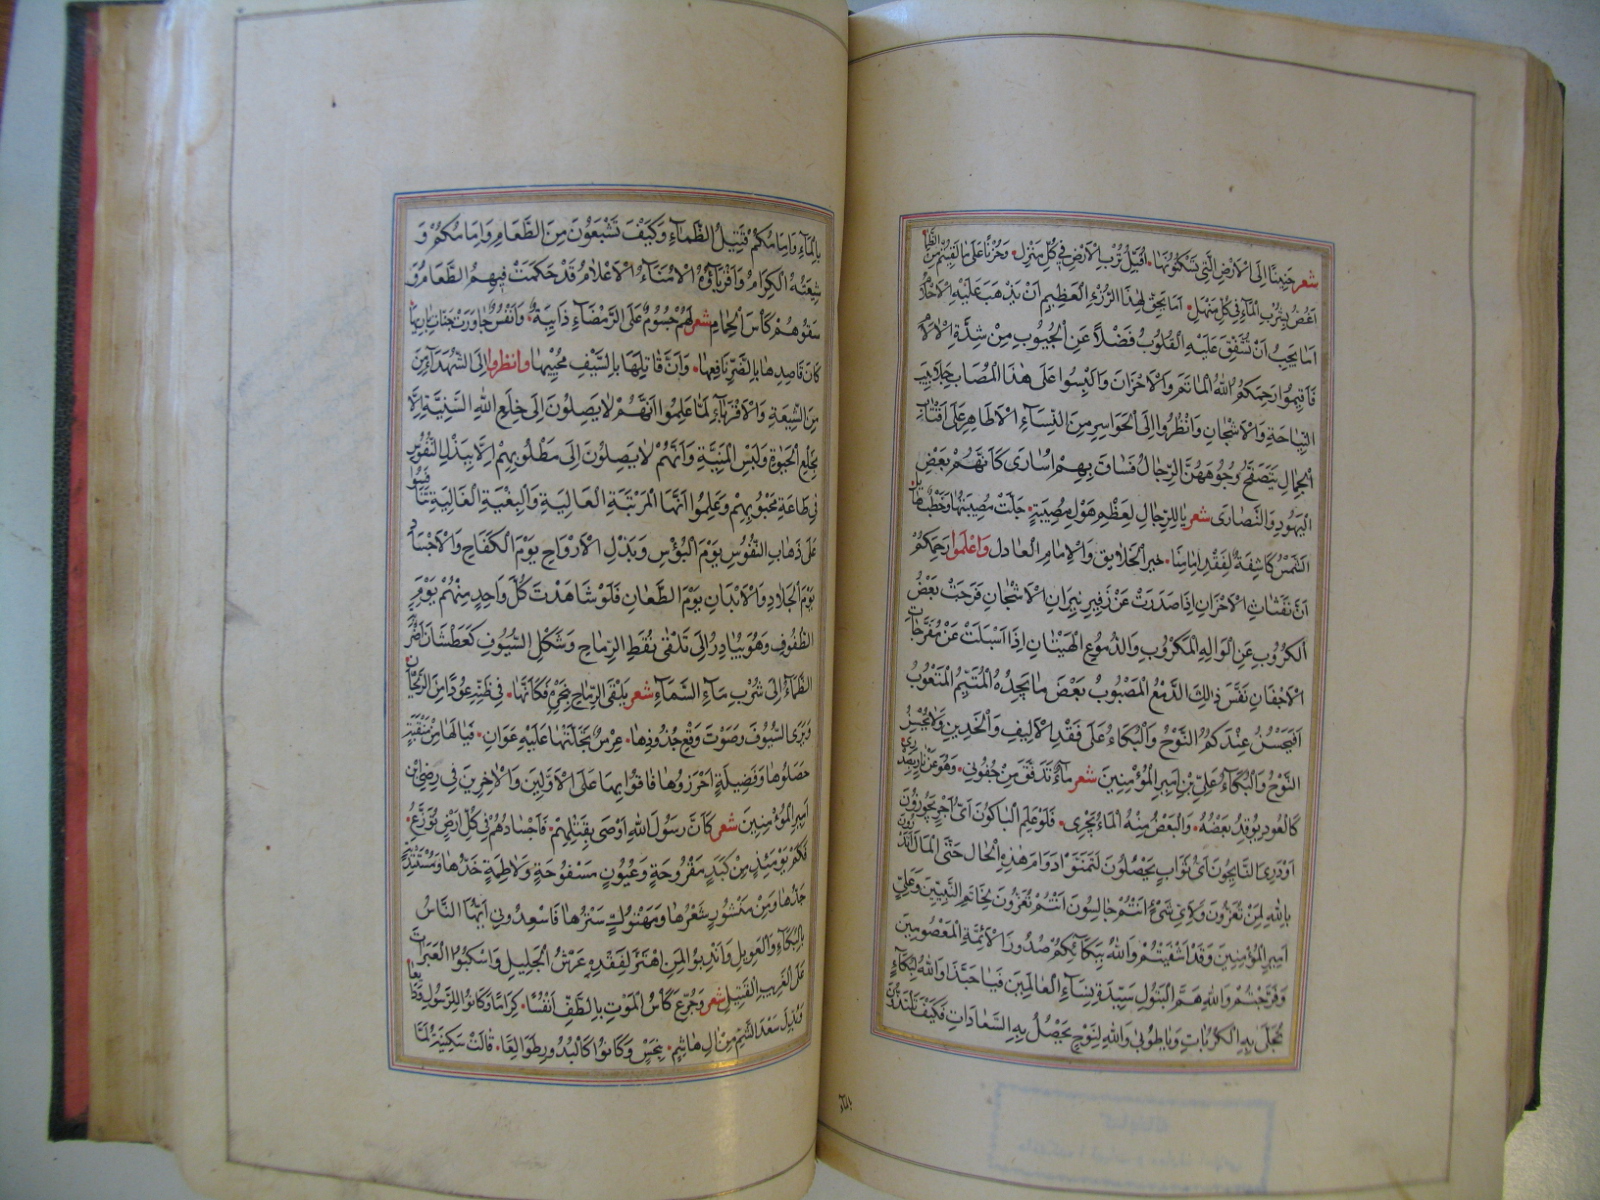 شعر جَيْعِنَا اِلَى الْاَرْضِ الَّتِي تَسْكُنُونَهَا ۰ اُقَبِّلُ تُرْبَ الْاَرْضِ فِي كُلِّ مَنْزِلٍ ۰ وَحُزْنًا عَلَى مَا لَقِيتُمْ مِنَ الظَّمَا
اَغُصُّ بِشُرْبِ الْمَاءِ فِي كُلِّ مَنْهَلٍ ۰ اَمَا يَحِقُّ لِهٰذَا الرُّزْءِ الْعَظِيمِ اَنْ يَذْهَبَ عَلَيْهِ
اَمَا يَجِبُ اَنْ تُشَقَّ عَلَيْهِ الْقُلُوبُ فَضْلًا عَنِ الْجُيُوبِ مِنْ شِدَّةِ الْاٰلَامِ
فَاَقِيمُوا رَحِمَكُمُ اللّٰهُ الْمَاتَمَ وَالْاَحْزَانَ وَالْبِسُوا عَلَى هٰذَا الْمُصَابِ جَلَابِيبَ
النِّيَاحَةِ وَالْاَشْجَانِ وَانْظُرُوا اِلَى الْحَوَاسِرِ مِنَ النِّسَاءِ الْاَطَاهِرِ عَلَى اَقْتَابِ
الْجِمَالِ يَتَصَفَّحُ وُجُوهَهُنَّ الرِّجَالُ فَسَاقَ بِهِمْ اُسَارَى كَاَنَّهُمْ بَعْضُ
الْيَهُودِ وَالنَّصَارَى شعر يَا لَلرِّجَالِ لِعُظْمِ هَوْلِ مُصِيبَةٍ ۰ جَلَّتْ مُصِيبَتُهَا وَخَطْبٌ هَائِلٌ
الشَّمْسُ كَاسِفَةٌ لِفَقْدِ اِمَامِنَا ۰ خَيْرِ الْخَلَايِقِ وَالْاِمَامِ الْعَادِلِ وَاعْلَمُوا رَحِمَكُمُ
اَنَّ نَفَثَاتِ الْاَحْزَانِ اِذَا صَدَرَتْ عَنْ زَفِيرِ نِيرَانِ الْاَشْجَانِ فَرَّجَتْ بَعْضَ
الْكُرُوبِ عَنِ الْوَالِهِ الْمَكْرُوبِ وَالدُّمُوعِ الْهَتَّانِ اِذَا اَسْبَلَتْ عَنْ مُقَرَّحَاتِ
الْاَجْفَانِ نَفَّسَ ذٰلِكَ الدَّمْعُ الْمَصْبُوبُ بَعْضَ مَا يَجِدُهُ الْمُتَيَّمُ الْمَتْعُوبُ
اَفَيَحْسُنُ عِنْدَكُمُ النَّوْحُ وَالْبُكَاءُ عَلَى فَقْدِ الْاَلِيفِ وَالْخَدِينِ وَلَا يَحْسُنُ
النَّوْحُ وَالْبُكَاءُ عَلَى بْنِ اَمِيرِ الْمُؤْمِنِينَ شعر مَاءٌ تَدَفَّقَ مِنْ جُفُونِي ۰ وَهُوَ عَنْ نَارٍ بِصَدْرِي
كَالْعُودِ يُوقَدُ بَعْضُهُ ۰ وَالْبَعْضُ مِنْهُ الْمَاءُ يَجْرِي ۰ فَلَوْ عَلِمَ الْبَاكُونَ اَيَّ اَجْرٍ يَحُوزُونَ
اَوْ دَرَى النَّايِحُونَ اَيَّ ثَوَابٍ يُحَصِّلُونَ لَتَمَنَّوْا دَوَامَ هٰذِهِ الْحَالِ حَتَّى الْمَآلِ
بِاللّٰهِ لِمَنْ تُعَزُّونَ وَلِاَيِّ شَيْءٍ اَنْتُمْ جَالِسُونَ اَنْتُمْ تُعَزُّونَ بِخَاتَمِ النَّبِيِّينَ وَعَلِيٍّ
اَمِيرِ الْمُؤْمِنِينَ وَقَدْ اَشْفَيْتُمْ وَاللّٰهِ بِبُكَائِكُمْ صُدُورَ الْاَئِمَّةِ الْمَعْصُومِينَ
وَفَرَّجْتُمْ وَاللّٰهِ هَمَّ الْبَتُولِ سَيِّدَةِ نِسَاءِ الْعَالَمِينَ فَيَا حَبَّذَا وَاللّٰهِ الْبُكَاءُ
تُجْلَى بِهِ الْكُرُبَاتِ وَيَا طُوبَى وَاللّٰهِ لِنَوْحٍ يَحْصُلُ بِهِ السَّعَادَاتِ فَكَيْفَ تَلْتَذُّونَ
بالماء
بِالْمَاءِ وَاِمَامُكُمْ قَتِيلُ الظَّمَاءِ وَكَيْفَ تَشْبَعُونَ مِنَ الطَّعَامِ وَاِمَامُكُمْ وَ
شِيعَتُهُ الْكِرَامُ وَاَقْرِبَاؤُهُ الْاُمَنَاءُ الْاَعْلَامُ قَدْ حَكَمَتْ فِيهِمُ الطَّغَامُ وَ
سَقَوْهُمْ كَاْسَ الْحِمَامِ شعر لَهُمْ جُسُومٌ عَلَى الرَّمْضَاءِ ذَايِبَةٌ ۰ وَاَنْفُسٌ جَاوَرَتْ جَنَّاتِ بَارِيهَا
كَاَنَّ قَاصِدَهَا بِالضُّرِّ نَافِعُهَا ۰ وَاَنَّ قَاتِلَهَا بِالسَّيْفِ مُحْيِيهَا وانظروا اِلَى الشُّهَدَاءِ مِنَ
مِنَ الشِّيعَةِ وَالْاَقْرِبَاءِ لَمَّا عَلِمُوا اَنَّهُمْ لَا يَصِلُونَ اِلَى خِلَعِ اللّٰهِ السَّنِيَّةِ اِلَّا
بِخَلْعِ الْحَيٰوةِ وَلُبْسِ الْمَنِيَّةِ وَاَنَّهُمْ لَا يَصِلُونَ اِلَى مَطْلُوبِهِمْ اِلَّا بِبَذْلِ النُّفُوسِ
فِي طَاعَةِ مَحْبُوبِهِمْ وَعَلِمُوا اَنَّهَا الْمَرْتَبَةُ الْعَالِيَةُ وَالْبِغْيَةُ الْغَالِيَةُ
عَلَى ذَهَابِ النُّفُوسِ يَوْمَ الْبُؤْسِ وَبَذْلِ الْاَرْوَاحِ يَوْمَ الْكِفَاحِ وَالْاَجْسَادِ
يَوْمَ الْجِلَادِ وَالْاَبْدَانِ يَوْمَ الطِّعَانِ فَلَوْ شَاهَدْتَ كُلَّ وَاحِدٍ مِنْهُمْ يَوْمَ
الطُّفُوفِ وَهُوَ يُبَادِرُ اِلَى تَلَقِّي نُقَطِ الرِّمَاحِ وَشَكْلِ السُّيُوفِ كَعَطْشَانَ اَضَرَّ
الظَّمَاءُ اِلَى شُرْبِ مَاءِ السَّمَاءِ شعر يَلْقَى الرِّمَاحَ بِنَحْرِهِ فَكَاَنَّمَا ۰ فِي ظَنِّهِ عُودًا مِنَ الرَّيْحَانِ
وَيَرَى السُّيُوفَ وَصَوْتَ وَقْعِ حُدُودِهَا ۰ عِرْسٌ تَجَلَّتْهَا عَلَيْهِ غَوَانٍ ۰ فَيَا لَهَا مِنْ مَنْقَبَةٍ
حَصَّلُوهَا وَفَضِيلَةٍ اَحْرَزُوهَا فَاقُوا بِهَا عَلَى الْاَوَّلِينَ وَالْاٰخِرِينَ فِي رِضَى بْنِ
اَمِيرِ الْمُؤْمِنِينَ شعر كَاَنَّ رَسُولَ اللّٰهِ اَوْصَى بِقَتْلِهِمْ ۰ فَاَجْسَادُهُمْ فِي كُلِّ اَرْضٍ تُوَزَّعُ ۰
فَكَمْ يَوْمَئِذٍ مِنْ كَبِدٍ مَقْرُوحَةٍ وَعُيُونٍ مَسْفُوحَةٍ وَلَاطِمَةٍ خَدَّهَا وَمُسْتَنْدِبَةٍ
جَدَّهَا وَمِنْ مَنْشُورٍ شَعْرُهَا وَمَهْتُوكٍ سِتْرُهَا فَاسْعِدُونِي اَيُّهَا النَّاسُ
بِالْبُكَاءِ وَالْعَوِيلِ وَانْدُبُوا لِمَنِ اهْتَزَّ لِفَقْدِهِ عَرْشُ الْجَلِيلِ وَاسْكُبُوا الْعَبَرَاتِ
عَلَى الْغَرِيبِ الْقَتِيلِ شعر وَجُرِّعَ كَاْسَ الْمَوْتِ بِالطَّفِّ اَنْفُسًا ۰ كِرَامًا وَكَانُوا لِلرَّسُولِ وَدَائِعًا
وَبُدِّلَ سَعْدُ الشُّمِّ مِنْ اٰلِ هَاشِمٍ ۰ بِنَحْسٍ وَكَانُوا كَالْبُدُورِ طَوَالِعًا ۰ قَالَتْ سَكِينَةُ لَمَّا